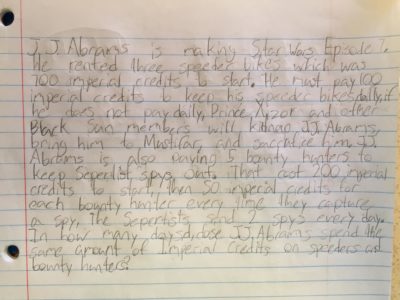 J.J. Abrams is making Star Wars Episode 7.
He rented three speeder bikes which was
700 imperial credits to start. He must pay 100
inperial credits to keep his speeder bikes daily, if
he does not pay daily, Prince Xizor and other
Black Sun members will kidnap J.J. Abrams,
bring him to Mustifar, and sacrafice him. J.J.
Abrams is also paying 5 bounty hunters to
keep Seperitist spys out. That cost 200 imperial
credits to start, then 50 imperial credits for
each bounty hunter every time they capture
a spy. The Sepertists send 2 spys every day.
In how many days dose J.J. Abrams spend the
same amount of Imperial Credits on speeders and
bounty hunters?